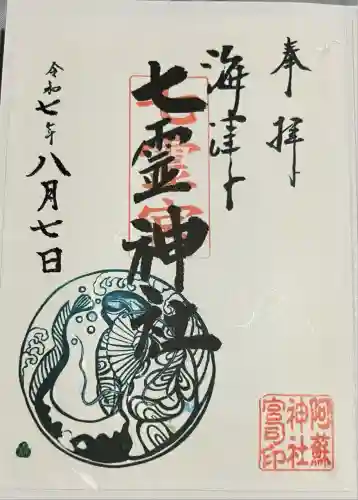 奉拝
七霊神社
令和七年八月七日
阿蘇
神社
宮司印